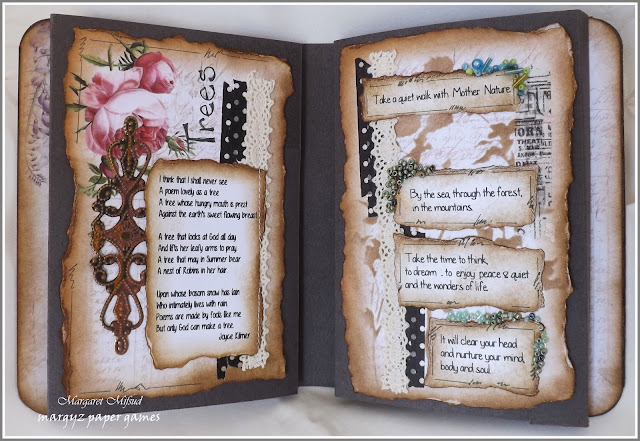 Trees
I think that I shall never see
A poem lovely as a tree
A tree whose hungry mouth is prest
Against the earth's sweet flowing breast
A tree that looks at God all day
And lifts her leafy arms to pray
A tree that may in Summer bear
A nest of Robins in her hair
Upon whose bosom snow has lain
Who intimately lives with rain.
Poems are made by fools like me
But only God can make a tree.
Joyce Kilmer
Take a quiet walk with Mother Nature
By the sea, through the forest,
in the mountains.
Take the time to think,
to dream .. to enjoy peace & quiet
and the wonders of life.
It will clear your head
and nurture your mind,
body and soul.
THEATRE
Margaret Mifsud
margyz paper games